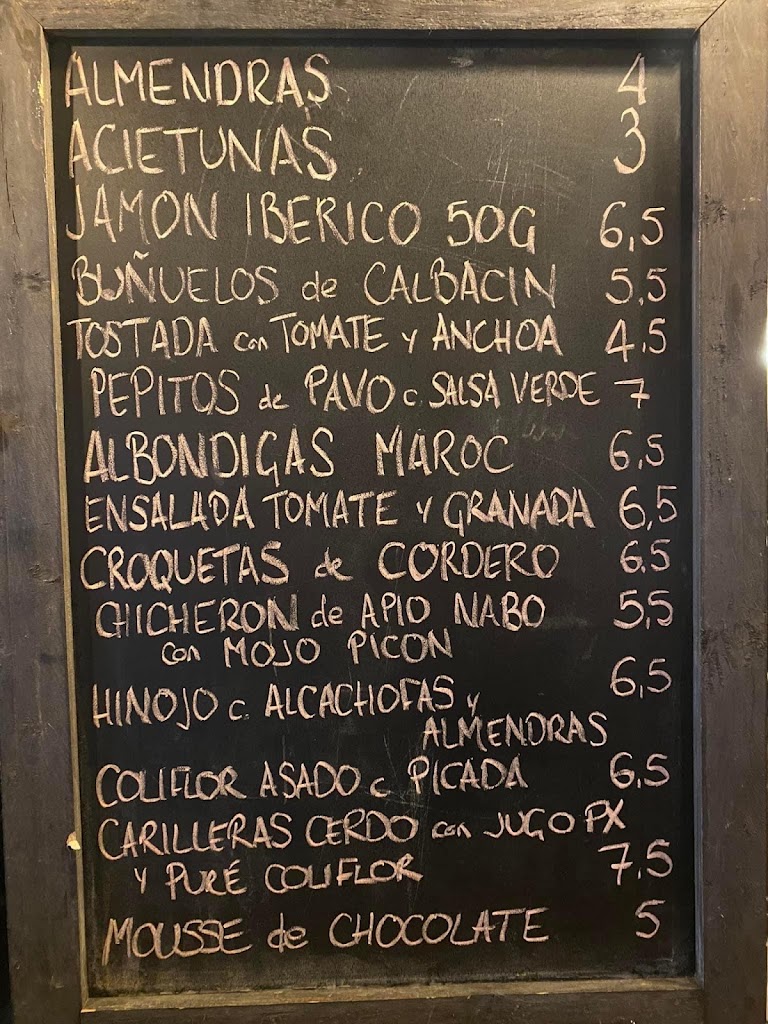 ALMENDRAS 4
ACIETUNAS 3
JAMON IBERICO 50G 6,5
BUÑUELOS de CALBACIN 5,5
TOSTADA con TOMATE y ANCHOA 4,5
PEPITOS de PAVO c. SALSA VERDE 7
ALBONDIGAS MAROC 6,5
ENSALADA TOMATE y GRANADA 6,5
CROQUETAS de CORDERO 6.5
CHICHERON de APIO NABO 5,5
con MOJO PICON
HINOJO c. ALCACHOFAS y 6,5
ALMENDRAS
COLIFLOR ASADO c PICADA 6,5
CARILLERAS CERDO con JUGO PX
y PURÉ COLIFLOR 7,5
MOUSSE de CHOCOLATE 5